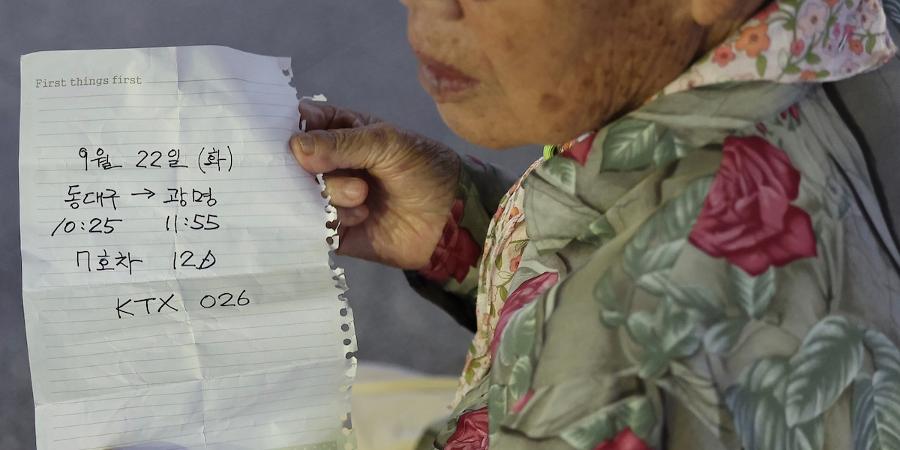 First things first
9월 22일 (화)
동대구 → 광명
10:25 11:55
7호차 12D
KTX 026